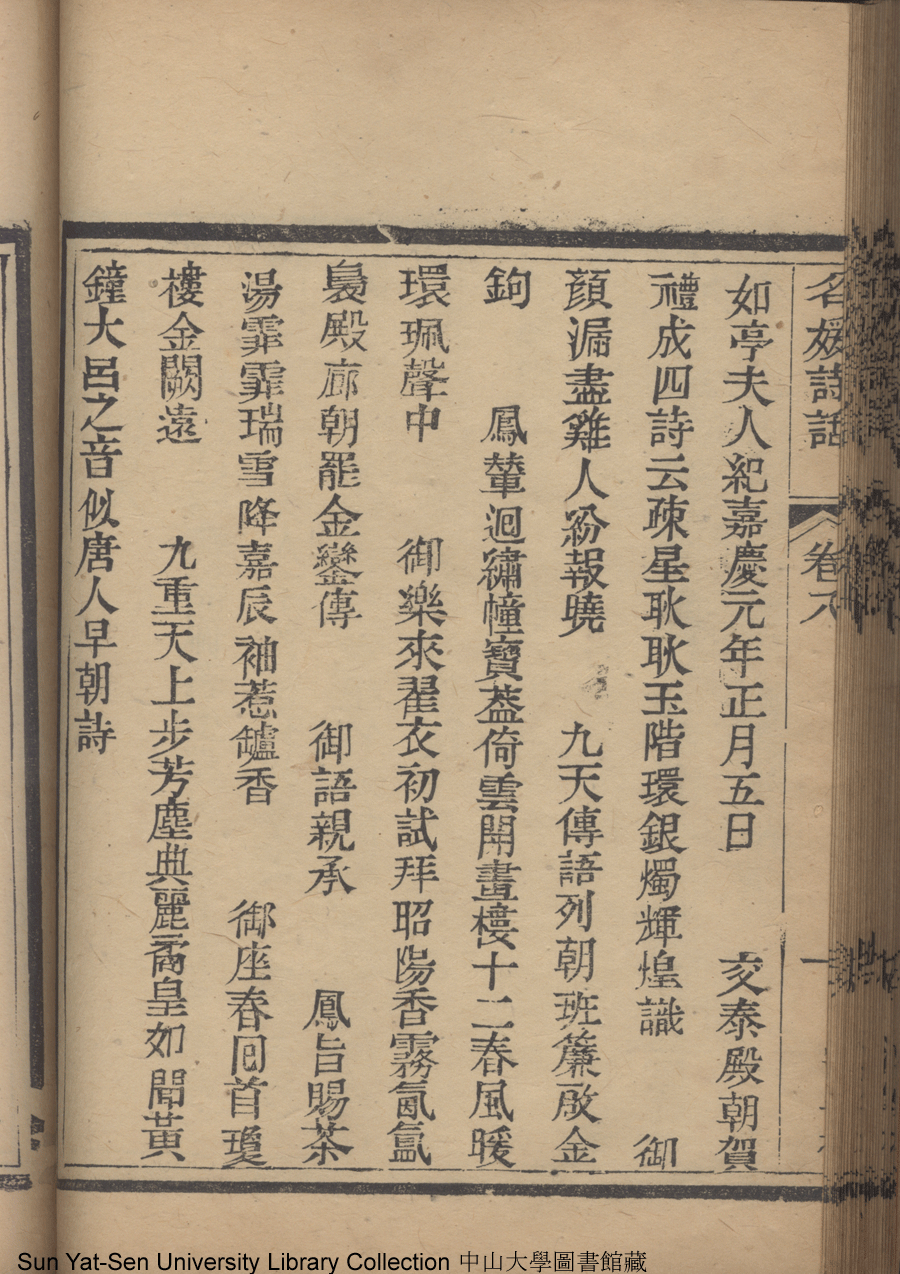 名媛詩話 卷八 一
如亭夫人紀嘉慶元年正月五日 交泰殿朝賀
禮成四詩云疎星耿耿玉階環銀燭輝煌識 御
顏漏盡雞人初報曉 九天傳語列朝班簾啟金
鉤 鳳輦迴繡幢寶葢倚雲開畫樓十二春風暖
環珮聲中 御樂來翟衣初試拜昭陽香霧氤氳
裊殿廊朝罷金鑾傳 御語親承 鳳旨賜茶
湯霏霏瑞雪降嘉辰袖惹鑪香 御座春囘首瓊
樓金闕遠 九重天上步芳塵典麗矞皇如聞黃
鐘大呂之音似唐人早朝詩
Sun Yat-Sen University Library Collection 中山大學圖書館藏